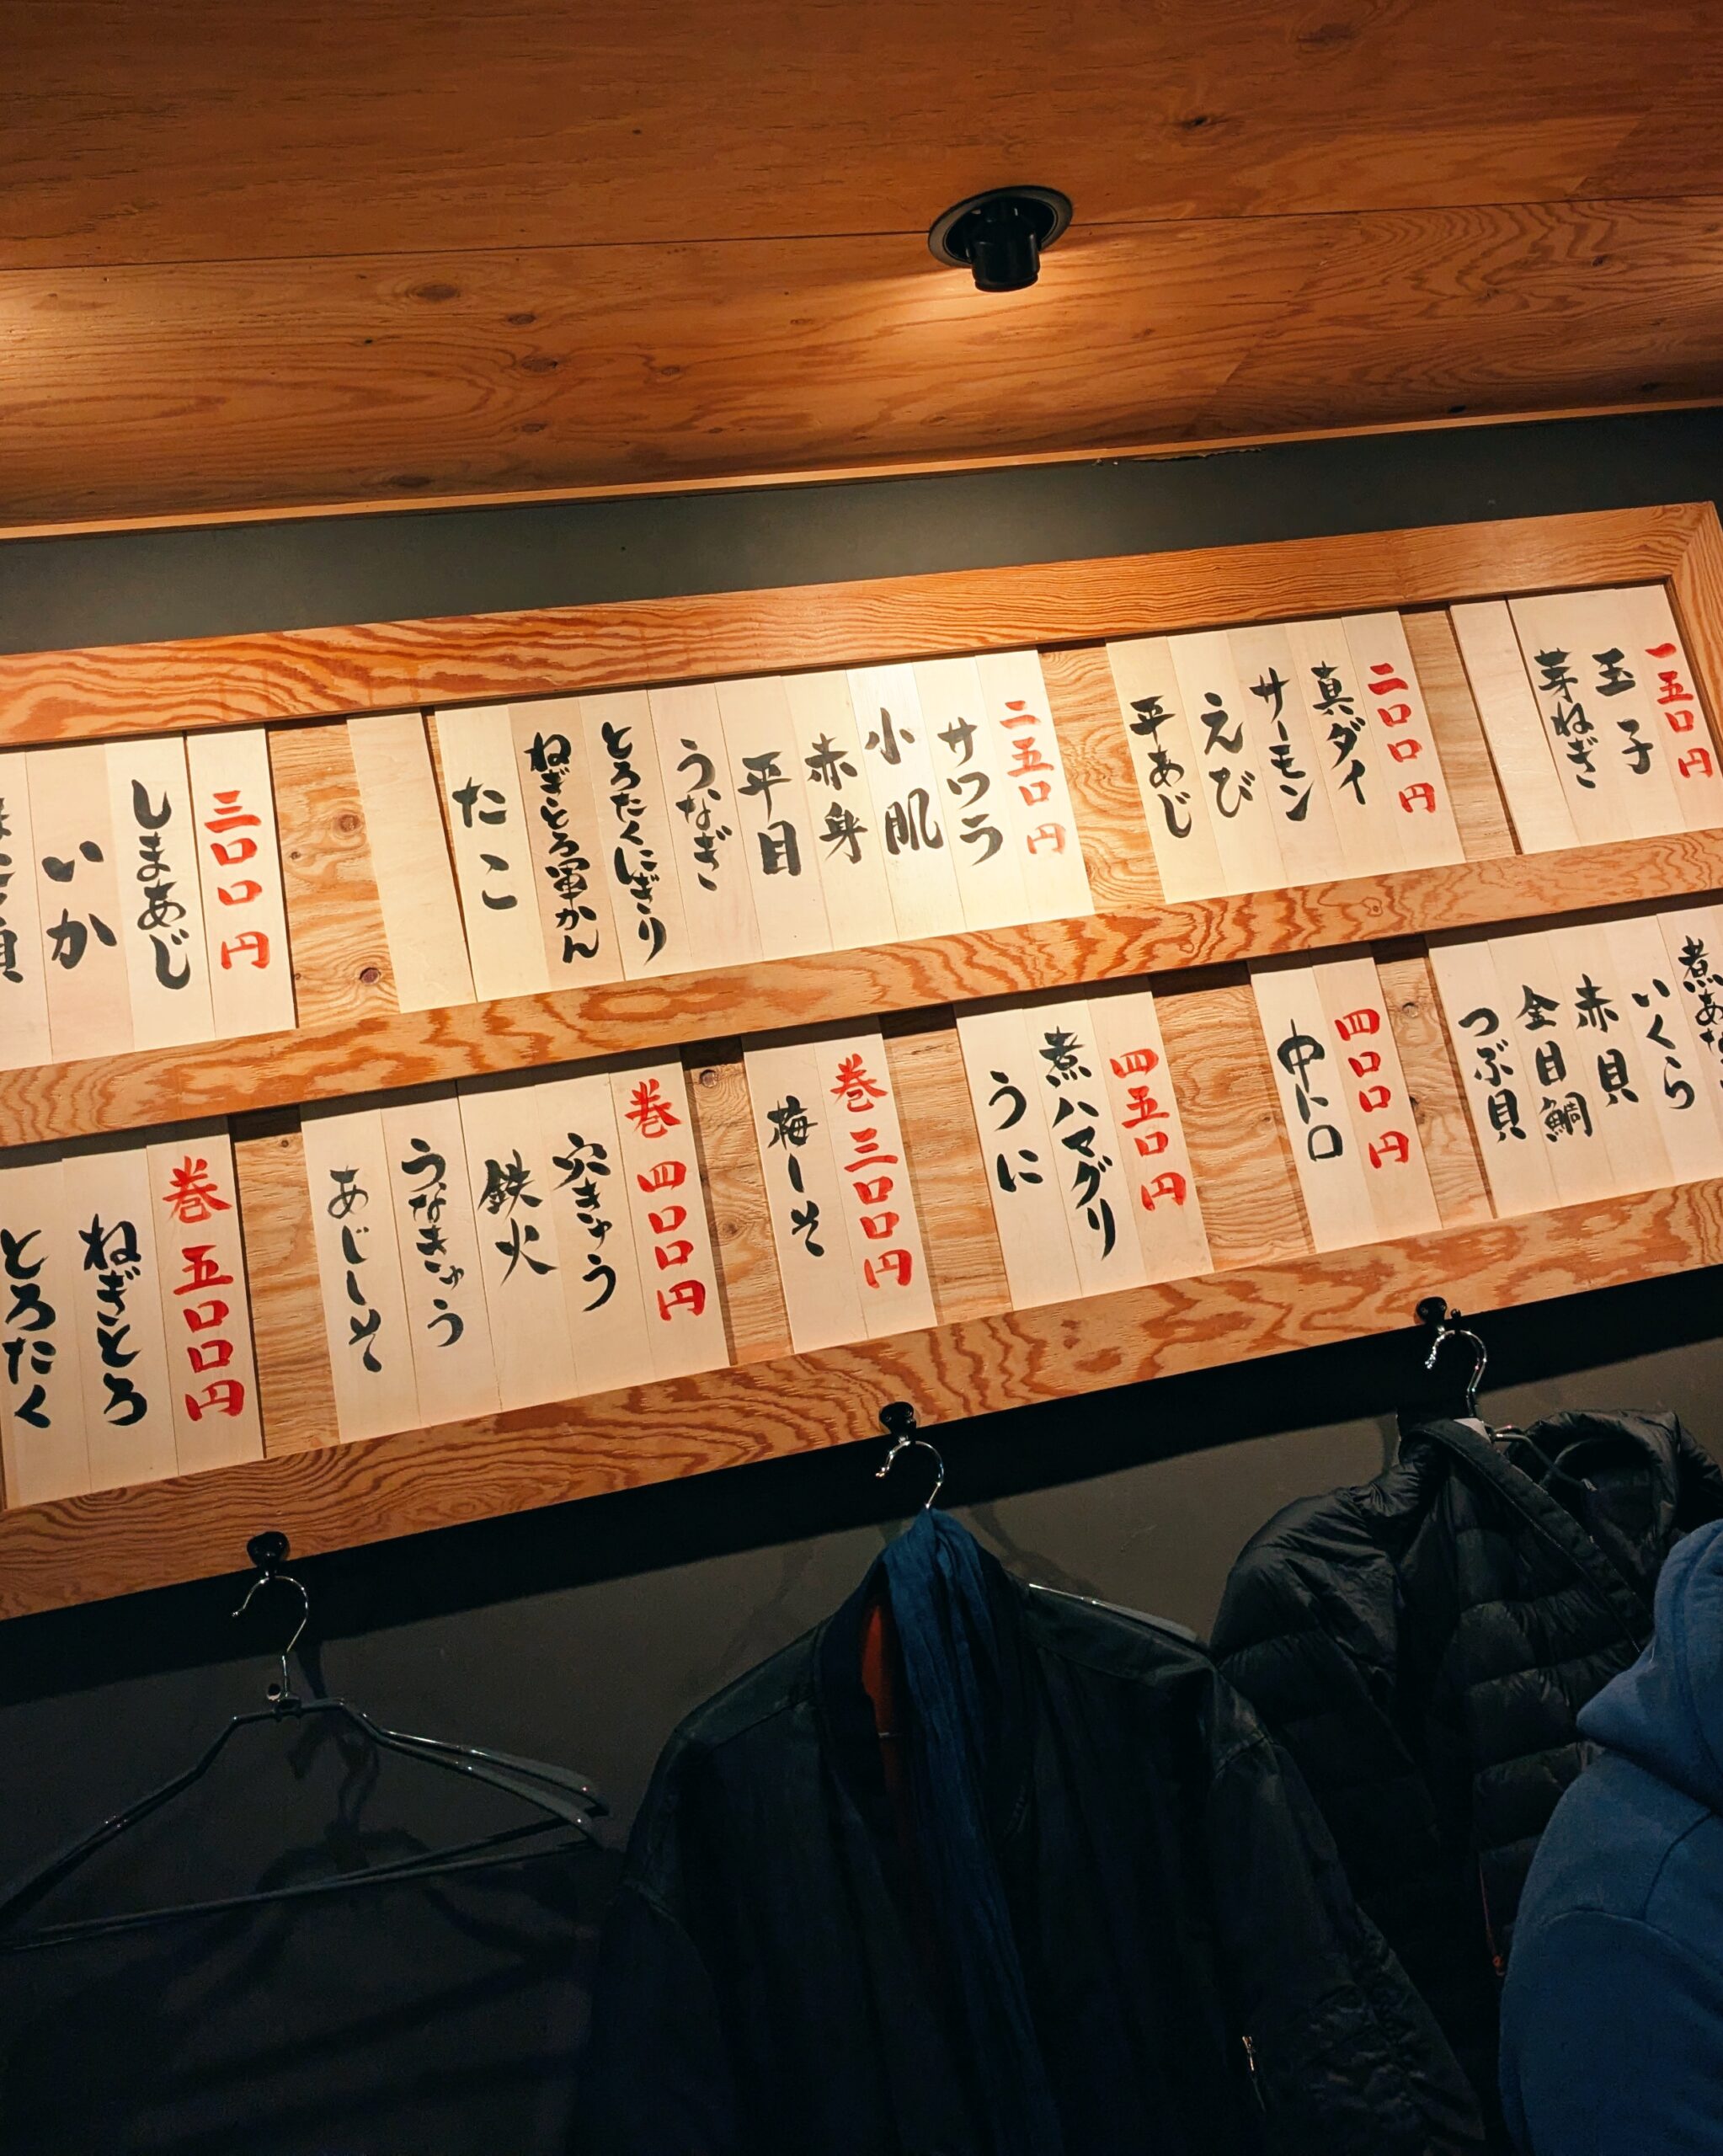 一五〇円
玉子
芽ねぎ
二〇〇円
真ダイ
サーモン
えび
平あじ
二五〇円
サワラ
小肌
赤身
平目
うなぎ
とろたくにぎり
ねぎとろ軍かん
たこ
三〇〇円
しまあじ
いか
いくら
赤貝
金目鯛
つぶ貝
四〇〇円
中トロ
四五〇円
煮ハマグリ
うに
巻三〇〇円
梅しそ
巻四〇〇円
穴きゅう
鉄火
うなきゅう
あじしそ
巻五〇〇円
ねぎとろ
とろたく